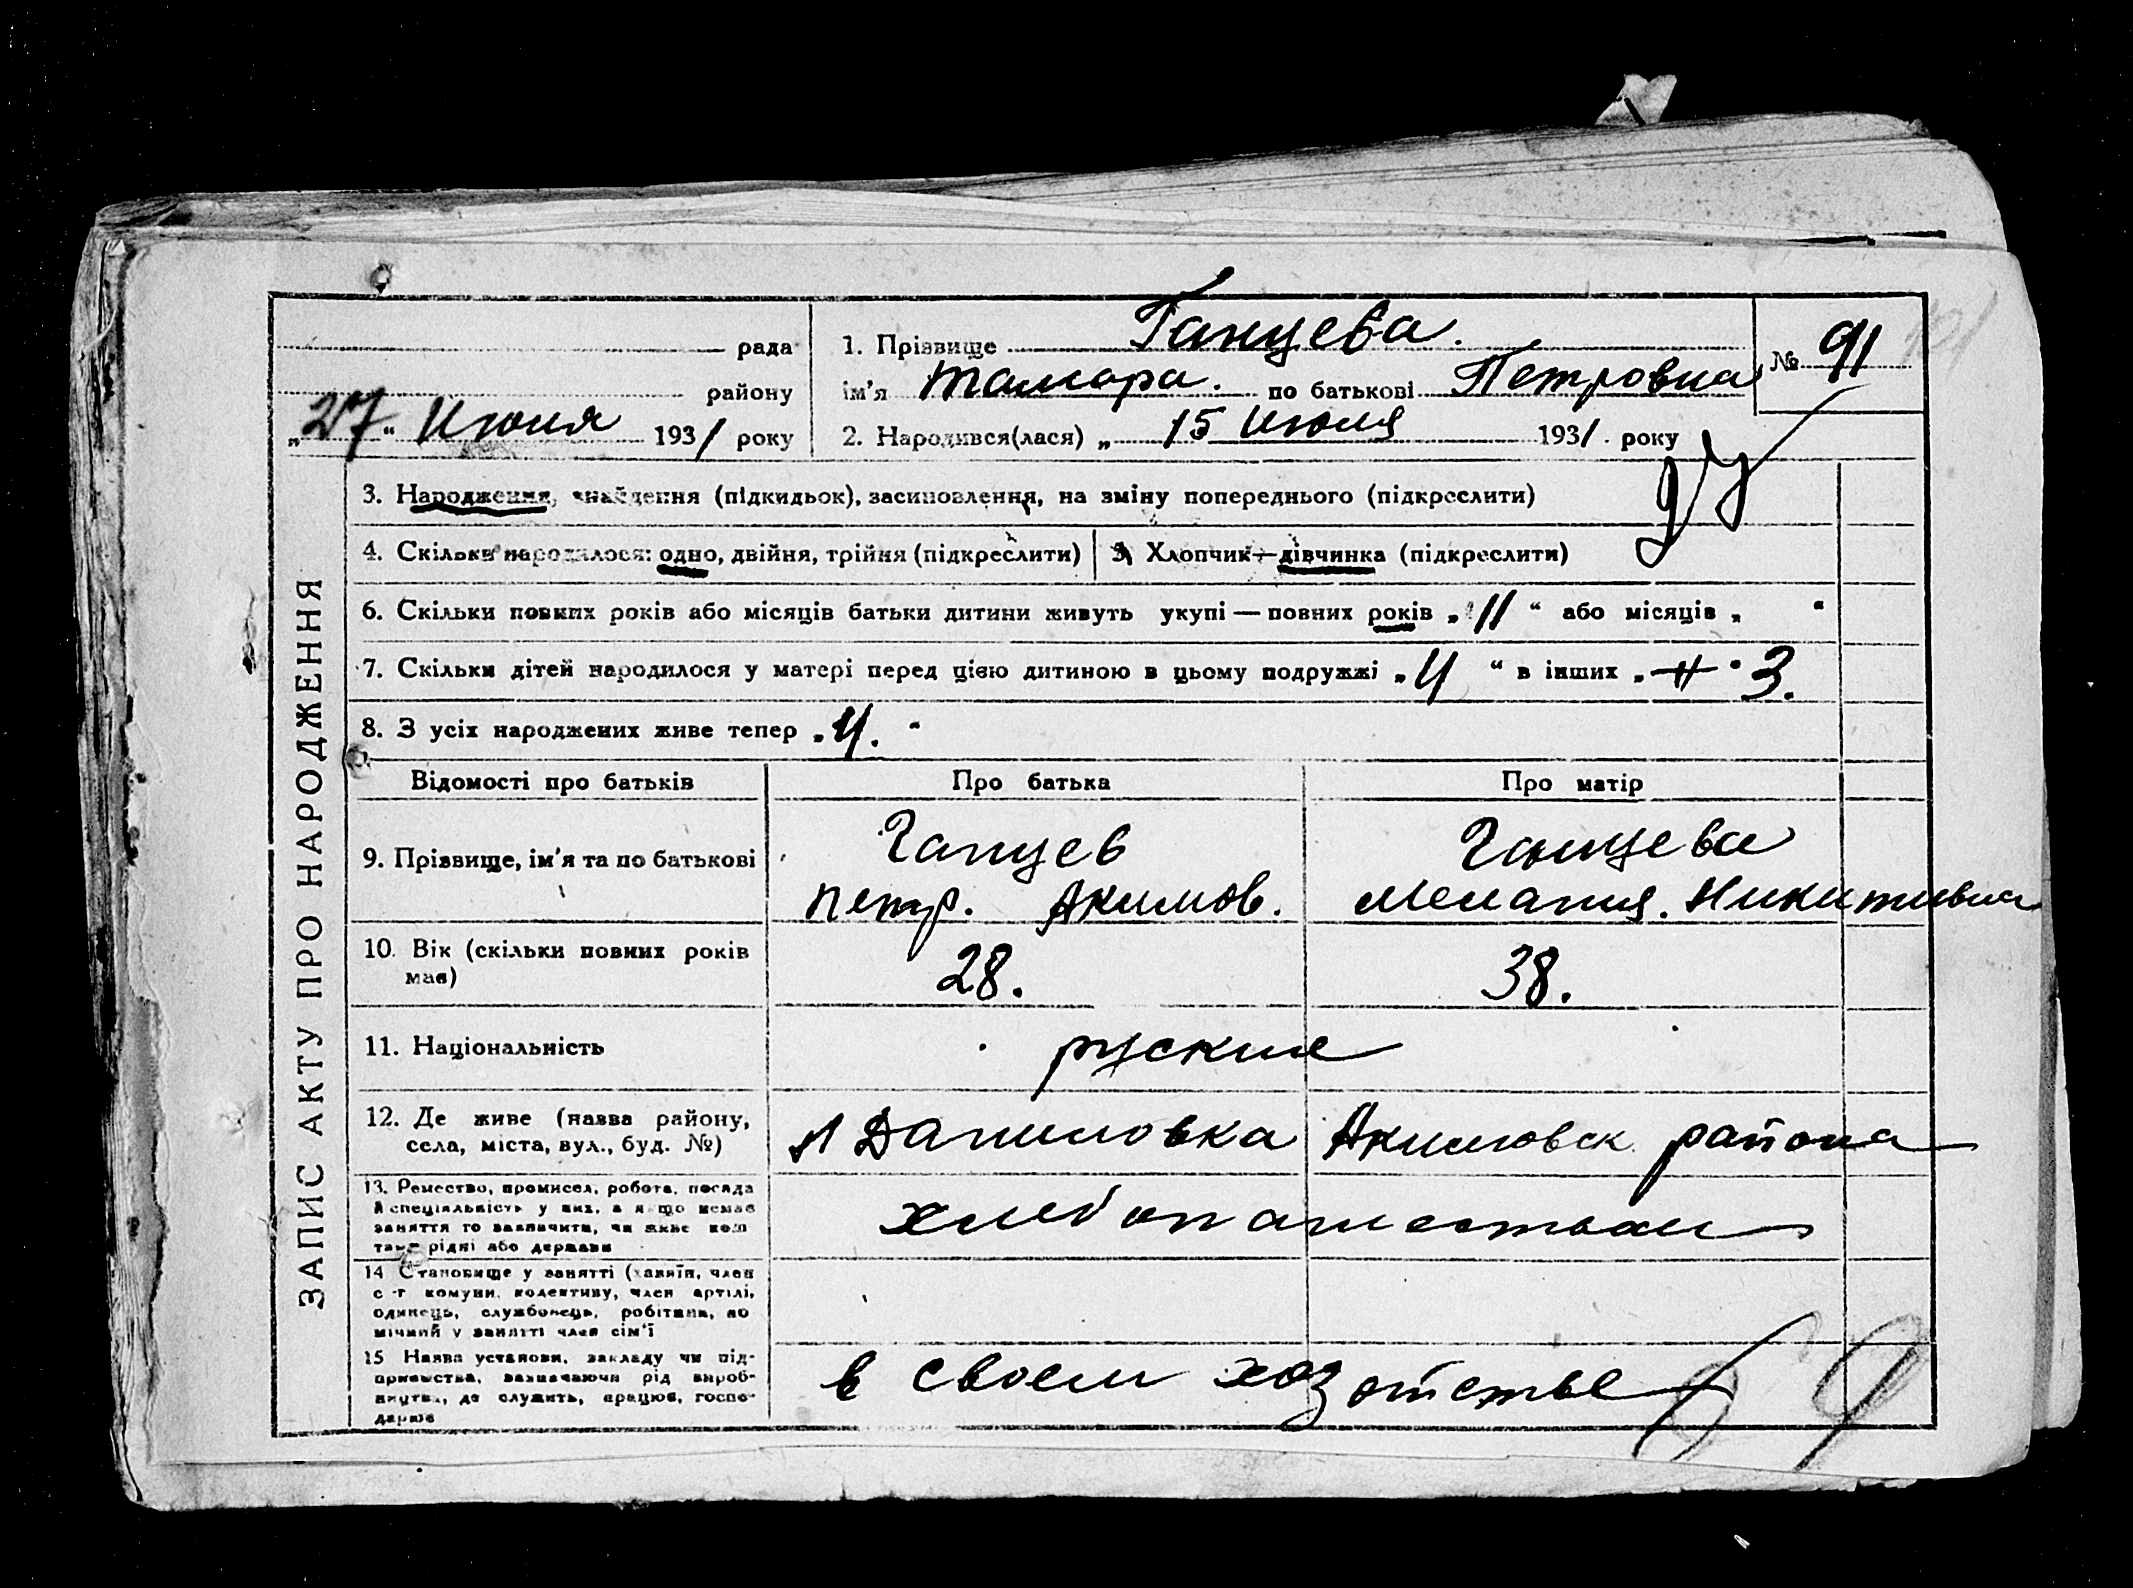 ЗАПИС АКТУ ПРО НАРОДЖЕННЯ
рада
району
„27“ Июня 1931 року
1. Прізвище Ганцева.
ім'я Тамара. по батькові Петровна
2. Народився(лася) „ 15 Июля 1931. року
№ 91
3. Народження, знайдення (підкидьок), засиновлення, на зміну попереднього (підкреслити)
4. Скільки народилося: одно, двійня, трійня (підкреслити)
5. Хлопчик—дівчинка (підкреслити)
6. Скільки повних років або місяців батьки дитини живуть укупі — повних років „ 11 “ або місяців „ “
7. Скільки дітей народилося у матері перед цією дитиною в цьому подружжі „ 4 “ в інших „ 3.
8. З усіх народжених живе тепер „ 4. “
Відомості про батьків Про батька Про матір
9. Прізвище, ім'я та по батькові
Ганцев
Петр. Акимов.
Ганцева
Мелания. Никитивна
10. Вік (скільки повних років має)
28. 38.
11. Національність
руские
12. Де живе (назва району,
села, міста, вул., буд. №)
Даниловка Акимовск. района
13. Ремество, промисел, робота, посада
й спеціяльність у них, а якщо немає
заняття то зазначити, чи живе кош
там рідні або держави
хлебопашеством
14 Становище у занятті (хазяїн, член
с-г комуни, колективу, член артілі,
одинець, службовець, робітник, по
мічний у занятті член сім'ї
15 Назва установи, закладу чи під-
приємства, зазначаючи рід вироб-
ництва, де служить, працює, госпо-
дарює
в своем хозойстве